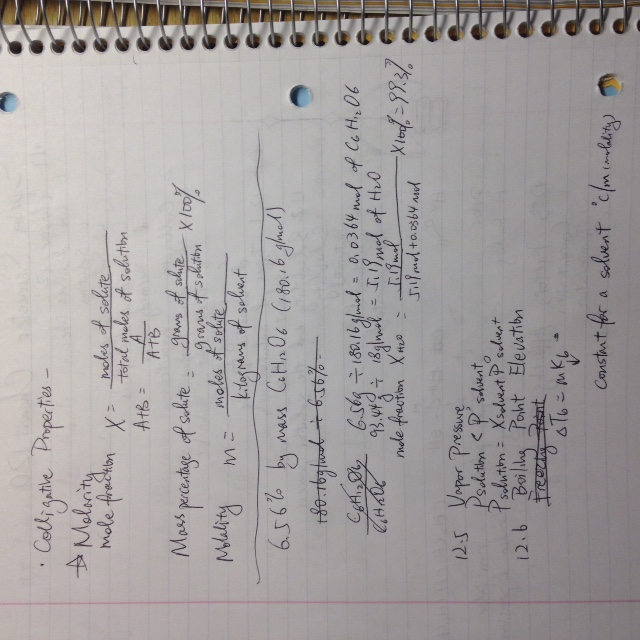 · Colligative Properties -
Molarity
mole fraction X = moles of solute / total moles of solution
A+B = A / A+B
Mass percentage of solute = grams of solute / grams of solution X 100%
Molality m = moles of solute / kilograms of solvent
6.56% by mass C6H12O6 (180.16 g/mol)
180.16g/mol ÷ 6.56%
C6H12O6 6.56g ÷ 180.16g/mol = 0.0364 mol of C6H12O6
C6H12O6 93.44g ÷ 18g/mol = 5.19 mol of H2O
mole fraction XH2O = 5.19mol / 5.19mol+0.0364mol X 100% = 99.3%
12.5 Vapor Pressure
Psolution < P°solvent
Psolution = Xsolvent P°solvent
12.6 Boiling Point Elevation
Freezing Point
ΔTb = m Kb
Constant for a solvent °C/m (molality)